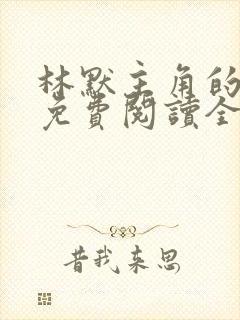 林默主角的
免費閱讀全
昔我来思